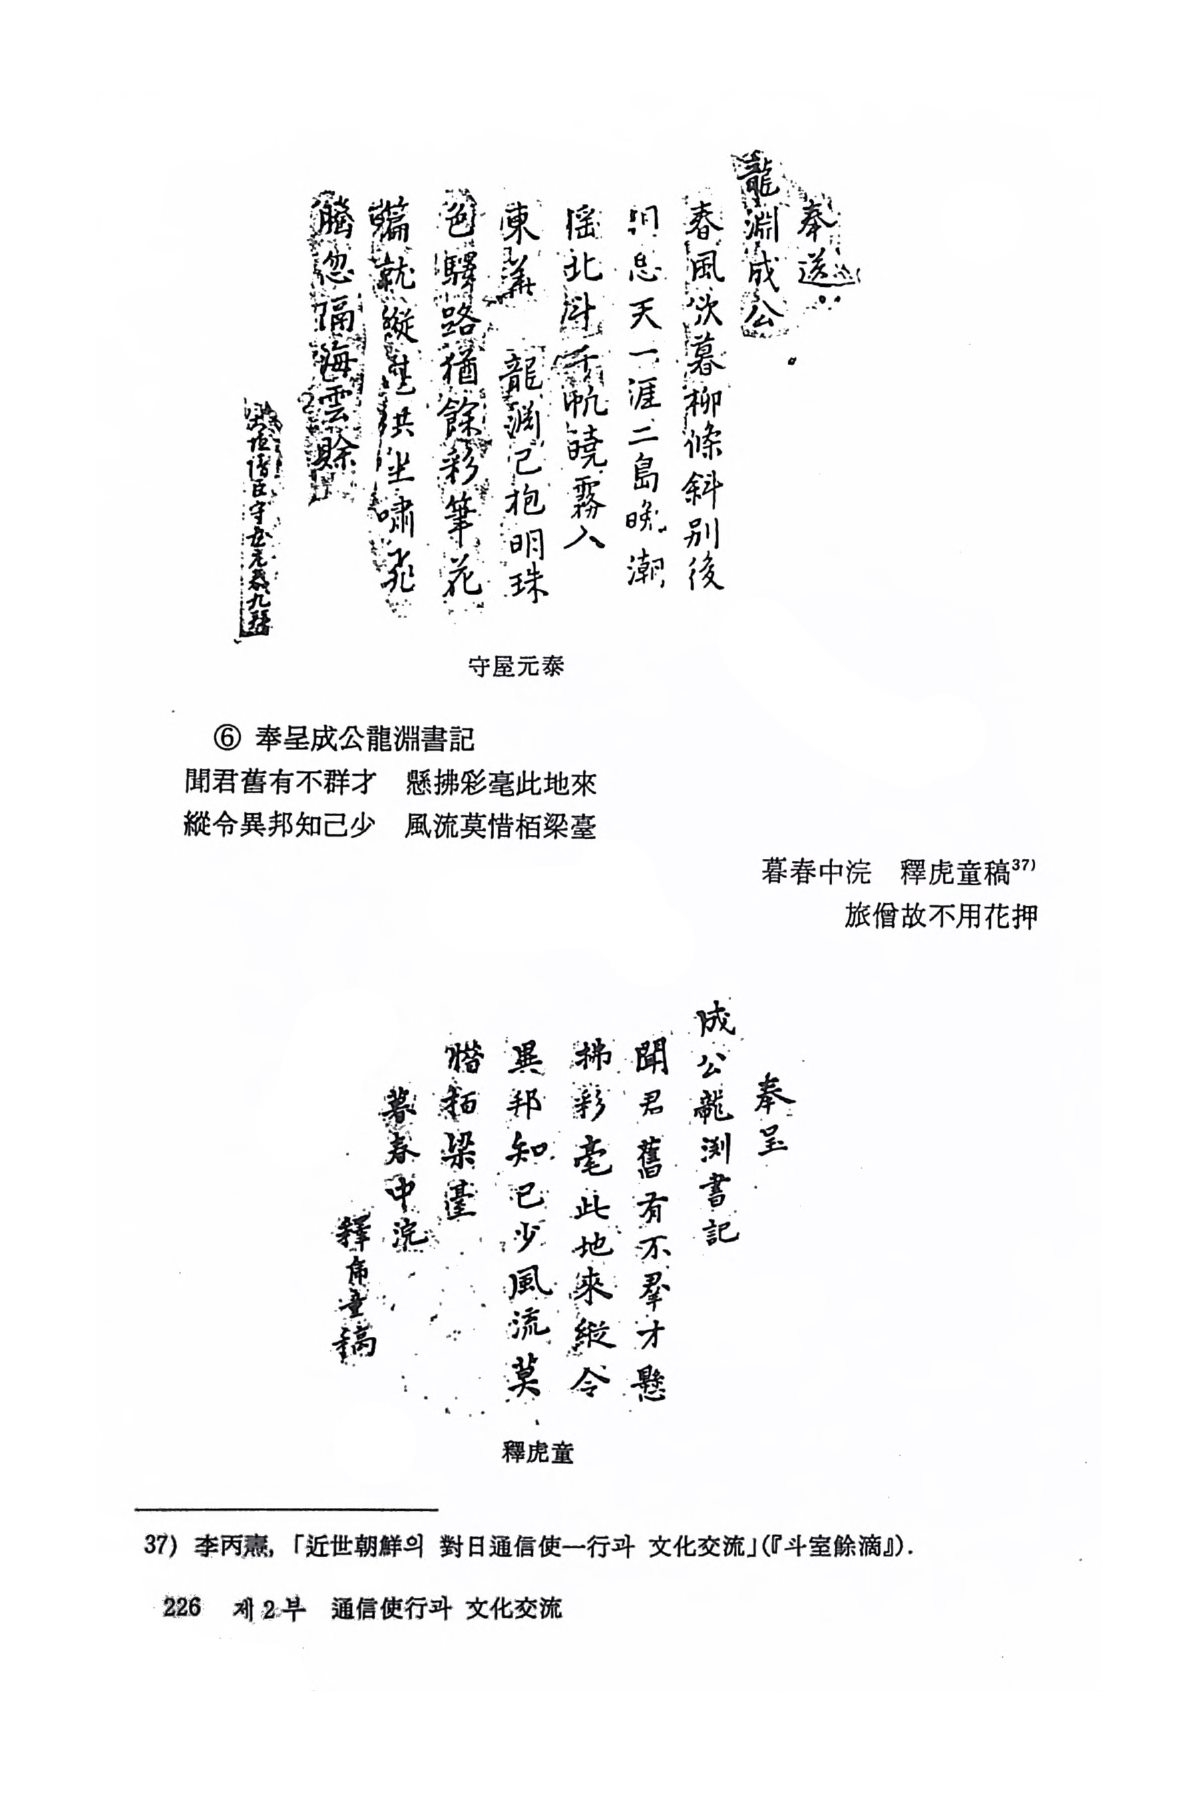 奉送
龍淵成公
春風欲暮柳條斜別後
相思天一涯二島晚潮
搖北斗千帆曉霧入
東華 龍淵已抱明珠
色驛路猶餘彩筆花
篇就縱
坐嘯飛
觴忽隔海雲賖
守屋元泰
⑥ 奉呈成公龍淵書記
聞君舊有不群才 懸拂彩毫此地來
縱令異邦知己少 風流莫惜栢梁臺
暮春中浣 釋虎童稿37)
旅僧故不用花押
奉呈
成公龍渕書記
聞君舊有不羣才懸
拂彩毫此地來縱令
異邦知已少風流莫
惜栢梁臺
暮春中浣
釋虎童稿
釋虎童
37) 李丙燾, 「近世朝鮮의 對日通信使一行과 文化交流」(『斗室餘滴』).
226 제2부 通信使行과 文化交流